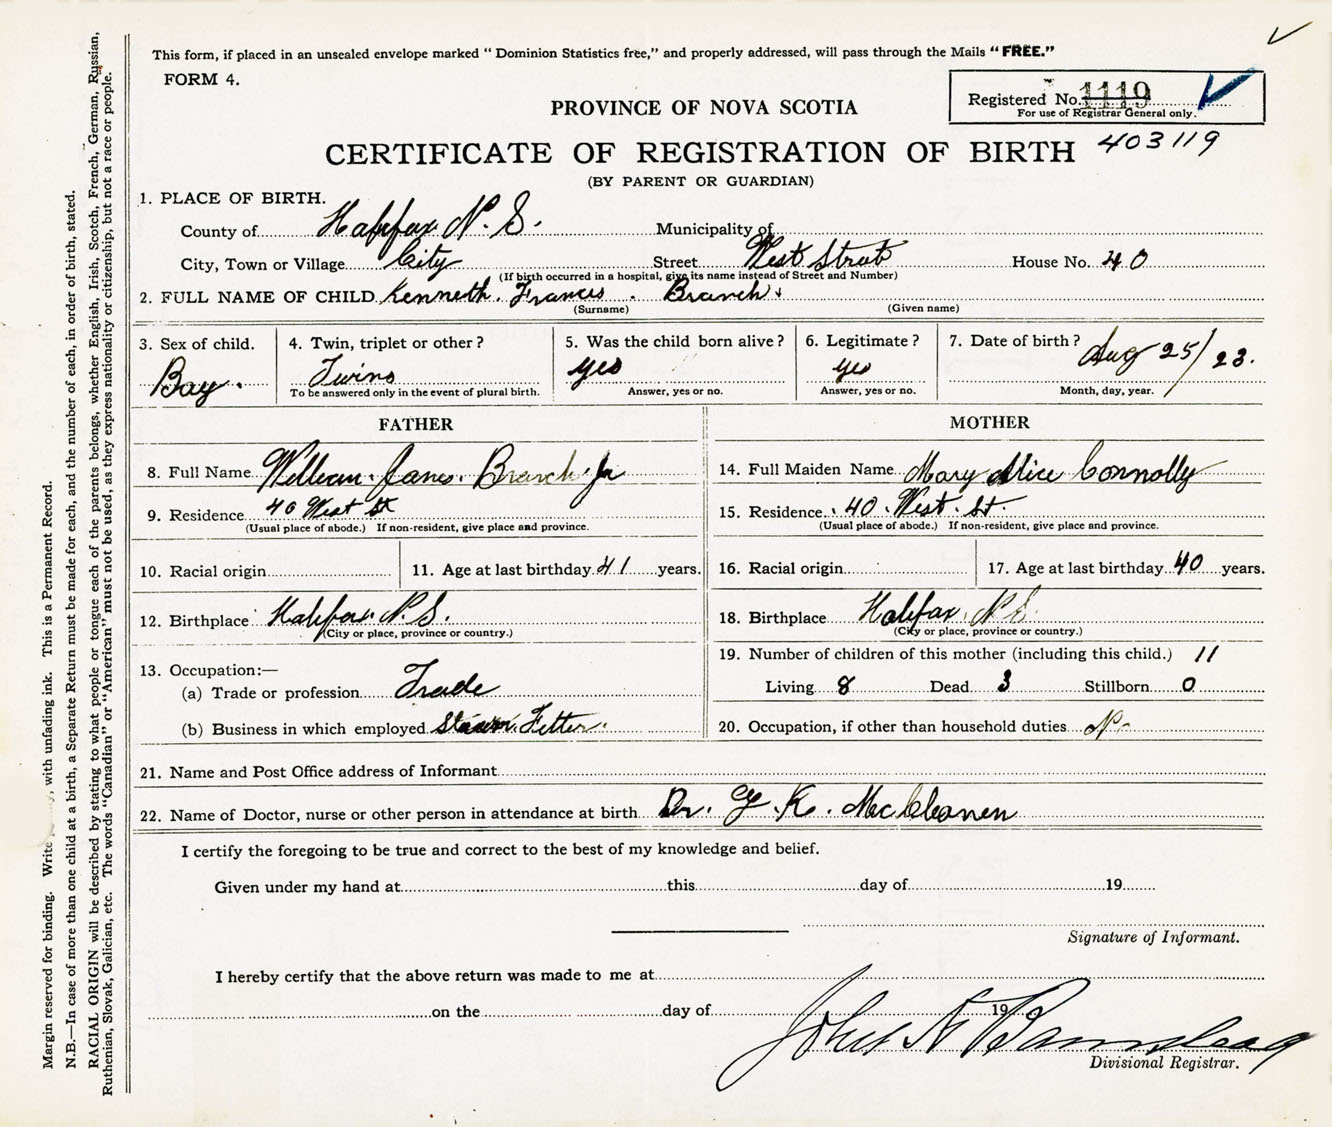 This form, if placed in an unsealed envelope marked "Dominion Statistics free," and properly addressed, will pass through the Mails "FREE."
FORM 4.
Registered No. 1119
For use of Registrar General only.
PROVINCE OF NOVA SCOTIA
403119
CERTIFICATE OF REGISTRATION OF BIRTH
(BY PARENT OR GUARDIAN)
1. PLACE OF BIRTH.
County of Halifax N. S. Municipality of
City, Town or Village City Street West Street House No. 40
(If birth occurred in a hospital, give its name instead of Street and Number)
2. FULL NAME OF CHILD Kenneth Francis Branch
(Surname) (Given name)
3. Sex of child. 4. Twin, triplet or other? 5. Was the child born alive? 6. Legitimate? 7. Date of birth?
Boy. Twins yes yes Aug 25/23.
To be answered only in the event of plural birth. Answer, yes or no. Answer, yes or no. Month, day, year.
FATHER MOTHER
8. Full Name William James Branch Jr 14. Full Maiden Name Mary Alice Connolly
9. Residence 40 West St 15. Residence 40 West St.
(Usual place of abode.) If non-resident, give place and province. (Usual place of abode.) If non-resident, give place and province.
10. Racial origin 11. Age at last birthday 41 years. 16. Racial origin 17. Age at last birthday 40 years.
12. Birthplace Halifax N.S. 18. Birthplace Halifax N S
(City or place, province or country.) (City or place, province or country.)
13. Occupation:— 19. Number of children of this mother (including this child.) 11
(a) Trade or profession Trade Living 8 Dead 3 Stillborn 0
(b) Business in which employed Steam Fitter 20. Occupation, if other than household duties
21. Name and Post Office address of Informant
22. Name of Doctor, nurse or other person in attendance at birth Dr. K.
I certify the foregoing to be true and correct to the best of my knowledge and belief.
Given under my hand at this day of 19
Signature of Informant.
I hereby certify that the above return was made to me at
on the day of 19
John A Barnstead
Divisional Registrar.
Margin reserved for binding. Write , with unfading ink. This is a Permanent Record.
N.B.—In case of more than one child at a birth, a Separate Return must be made for each, and the number of each, in order of birth, stated.
RACIAL ORIGIN will be described by stating to what people or tongue each of the parents belongs, whether English, Irish, Scotch, French, German, Russian,
Ruthenian, Slovak, Galician, etc. The words "Canadian" or "American" must not be used, as they express nationality or citizenship, but not a race or people.